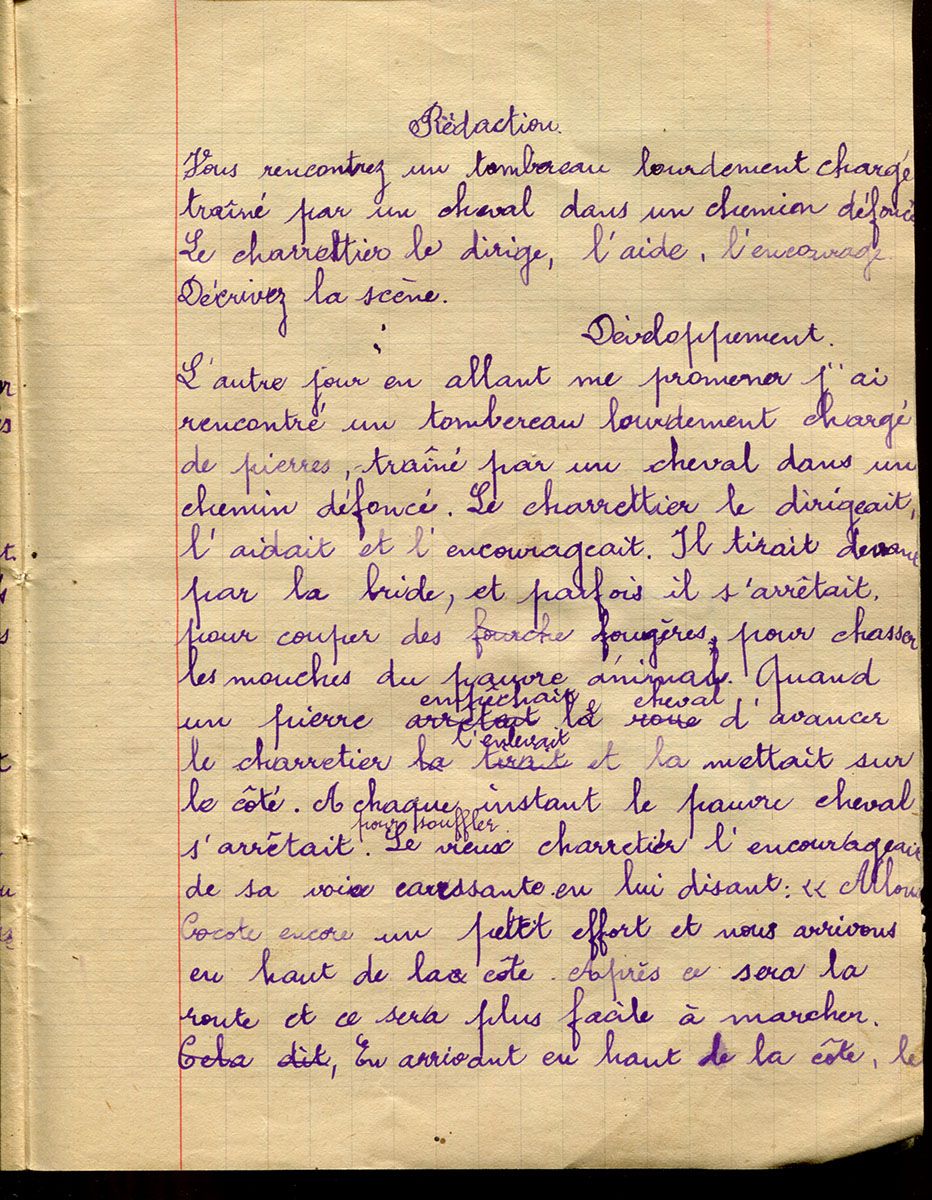 Rédaction.
Vous rencontrez un tombereau lourdement chargé
traîné par un cheval dans un chemion défoncé
Le charrettier le dirige, l'aide, l'encourage.
Décrivez la scène.
Développement.
L'autre jour en allant me promener j'ai
rencontré un tombereau lourdement chargé
de pierres, traîné par un cheval dans un
chemin défoncé. Le charrettier le dirigeait,
l'aidait et l'encourageait. Il tirait devant
par la bride, et parfois il s'arrêtait,
pour couper des fourche fougères, pour chasser
les mouches du pauvre animal. Quand
empêchait cheval
un pierre arrêtait la roue d'avancer
l'enlevait
le charretier la tirait et la mettait sur
le côté. A chaque instant le pauvre cheval
pour souffler.
s'arrêtait. Le vieux charretier l'encourageait
de sa voix caressante en lui disant: « Allons
Cocote encore un petit effort et nous arrivons
en haut de la côte. Après ce sera la
route et ce sera plus facile à marcher.
Cela dit, En arrivant en haut de la côte, le